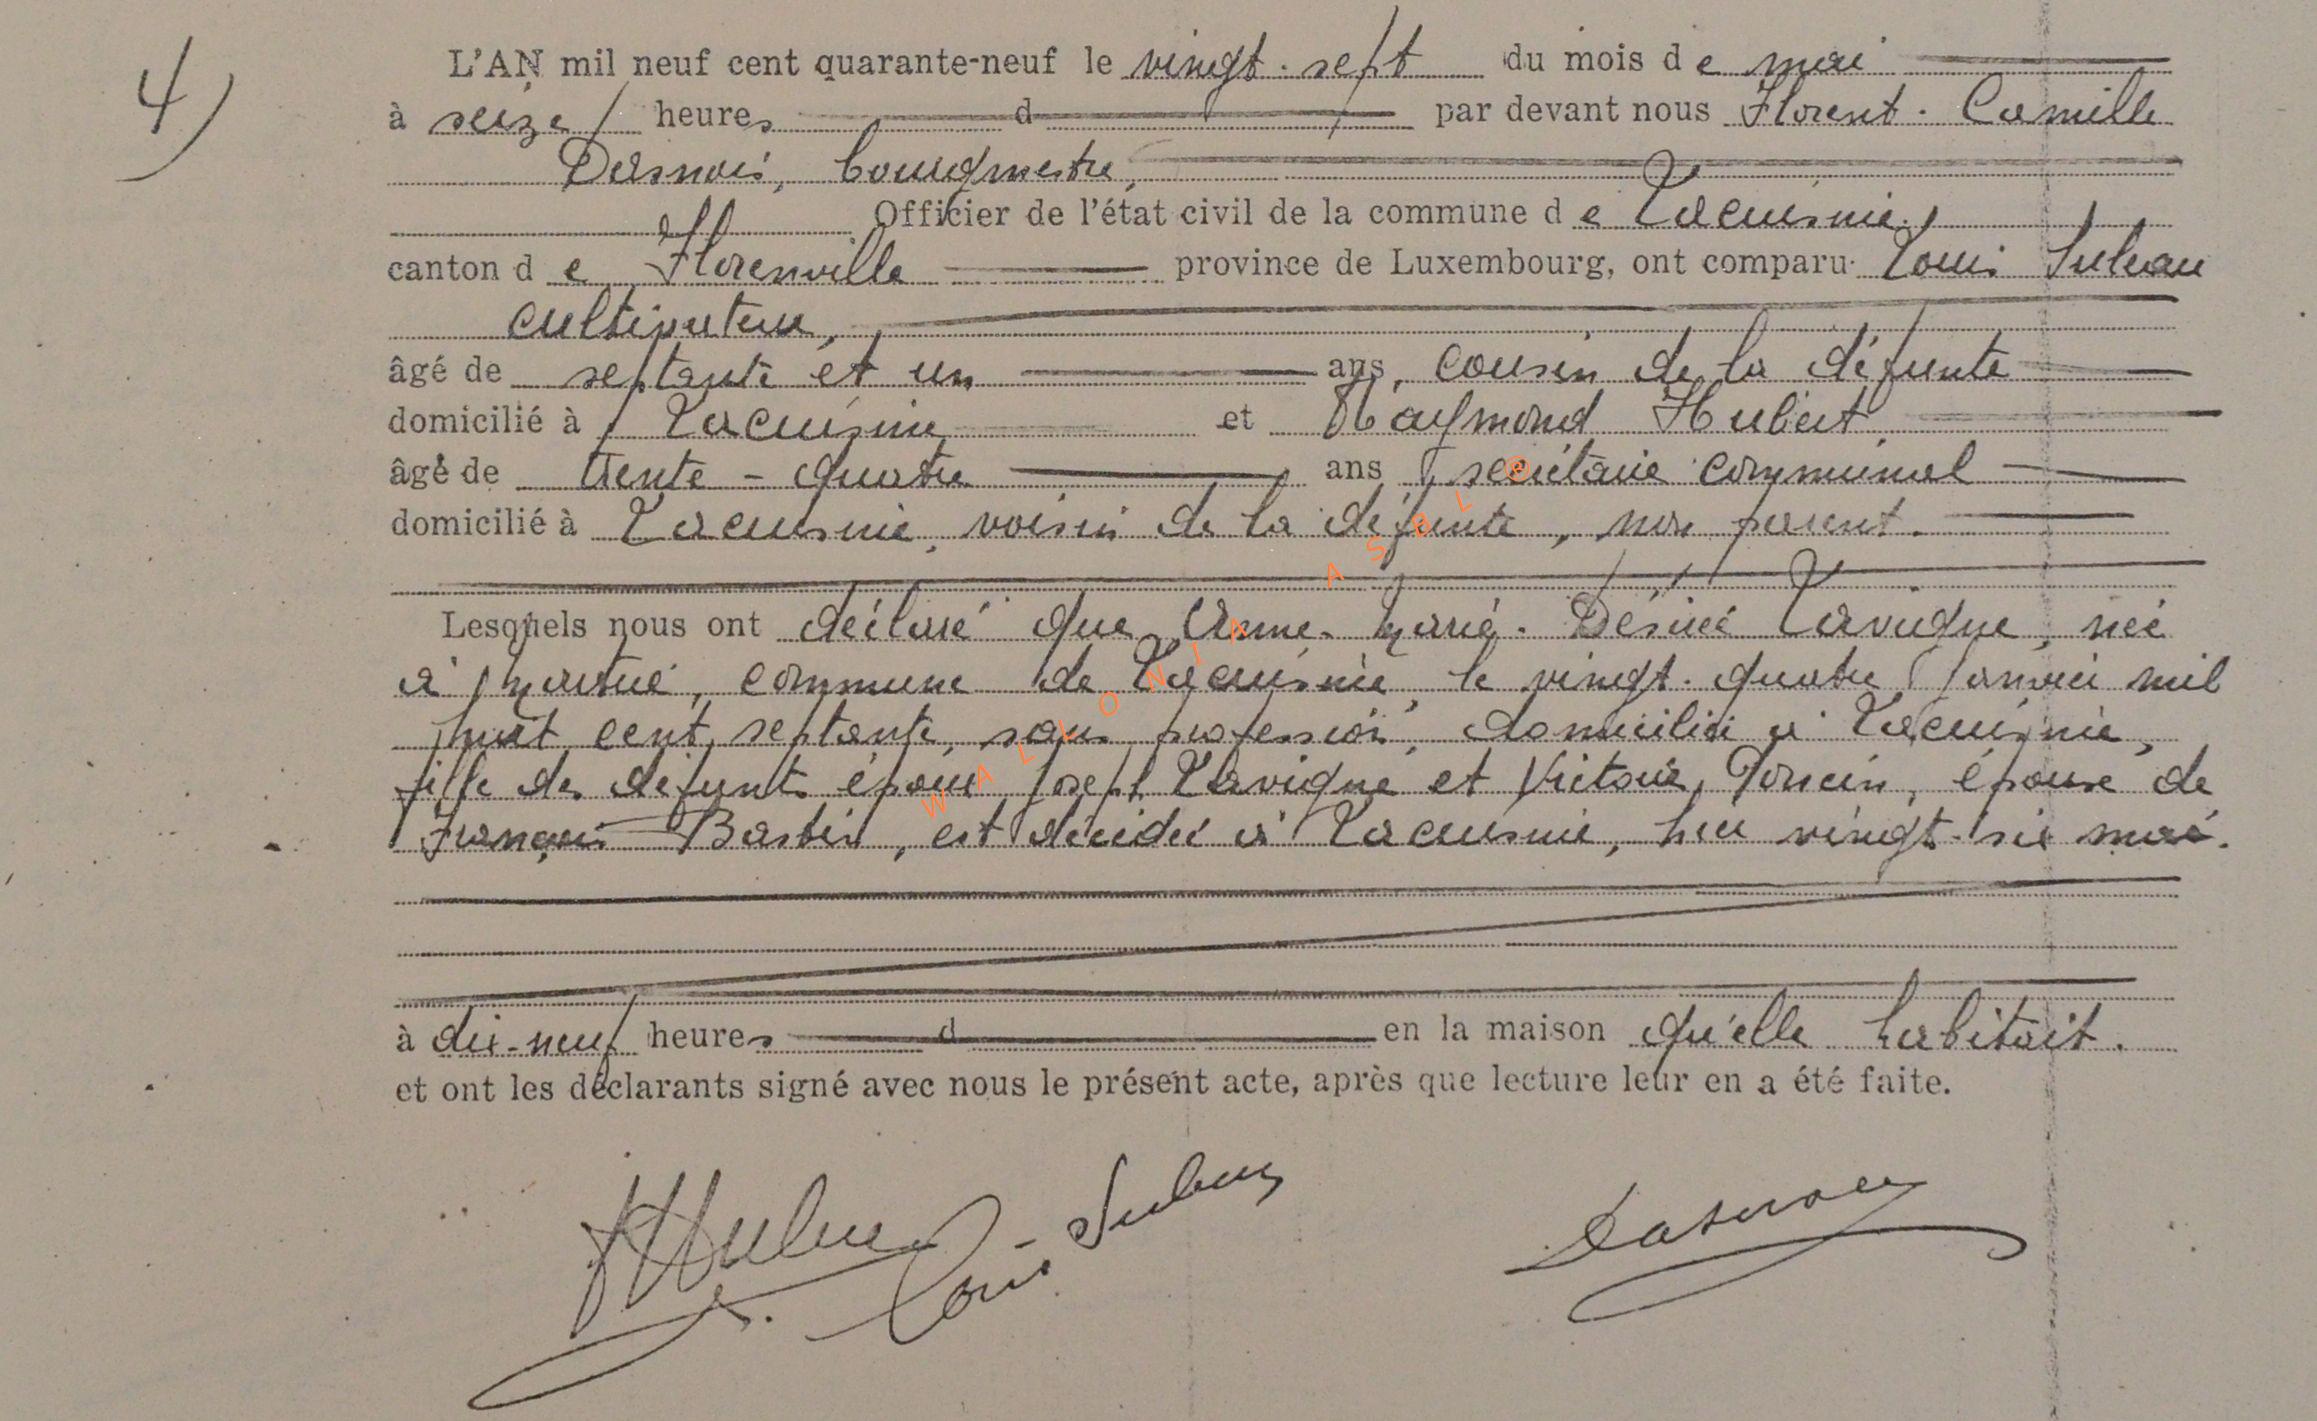 4)
L'AN mil neuf cent quarante-neuf le vingt-sept du mois de mai
à seize heures d par devant nous Florent-Camille
Dasnois, bourgmestre,
Officier de l'état civil de la commune de Lacuisine,
canton de Florenville province de Luxembourg, ont comparu Louis Suleau
cultivateur,
âgé de septante et un ans, cousin de la défunte
domicilié à Lacuisine et Raymond Hubert,
âgé de trente-quatre ans, secrétaire communal
domicilié à Lacuisine, voisin de la défunte, non parent.
Lesquels nous ont déclaré que Anne-Marie-Désirée Lavigne, née
à Martué, commune de Lacuisine, le vingt-quatre janvier mil
huit cent septante, sans profession, domiciliée à Lacuisine,
fille des défunts époux Joseph Lavigne et Victoire Poncin, épouse de
François Bastin, est décédée à Lacuisine, hier vingt-six mai.
à dix-neuf heures d en la maison qu'elle habitait.
et ont les déclarants signé avec nous le présent acte, après que lecture leur en a été faite.
WALLONIA ASBL ©
Louis Suleau
Dasnois